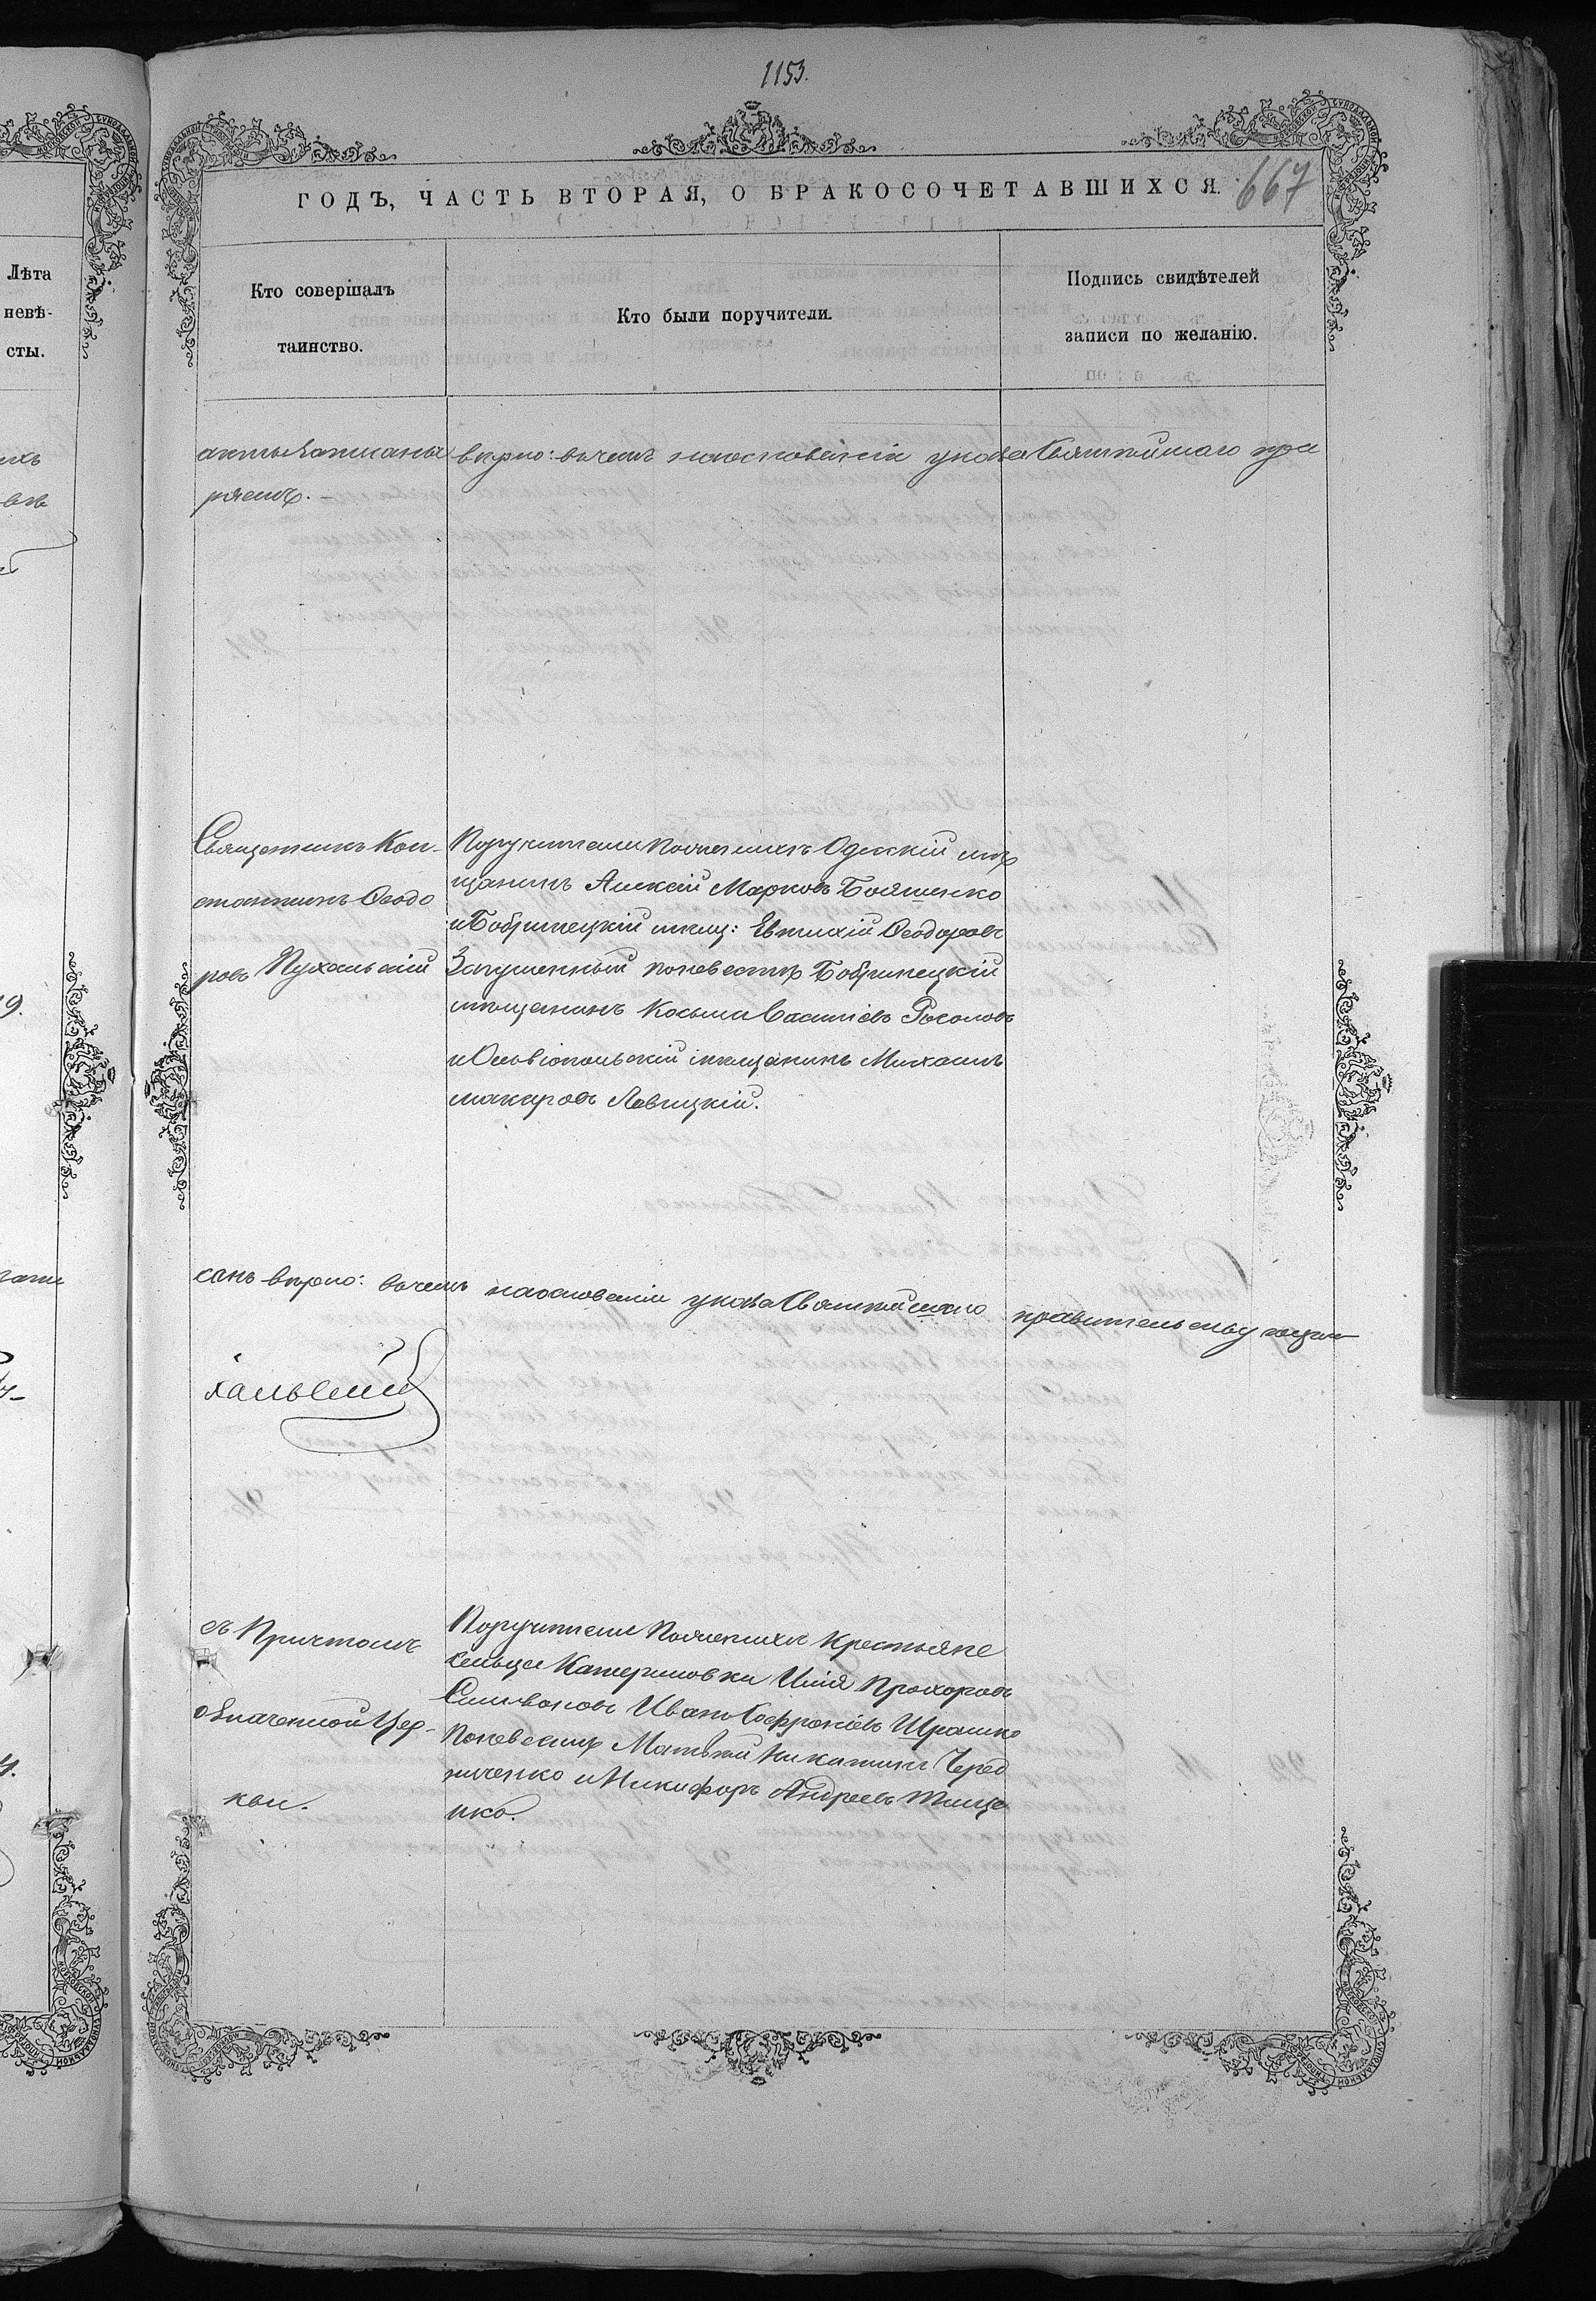 1153.
ГОДЪ, ЧАСТЬ ВТОРАЯ, О БРАКОСОЧЕТАВШИХСЯ.
667
Лѣта
невѣ-
сты.
Кто совершалъ
таинство.
Кто были поручители.
Подпись свидѣтелей
записи по желанію.
акты записаны вѣрно: въ чемъ на основаніи указа Святѣйшаго
Священникъ Кон-
стантинъ Ѳеодо
ровъ Пухальскій
Поручители по женихѣ Одесскій мѣ
щанинъ Алексѣй Марковъ Бояшенко
и Бобринецкій мѣщ: Евтихій Ѳеодоровъ
по невестѣ Бобринецкій
мѣщанинъ Косьма Василіевъ
и Ольвіопольскій мѣщанинъ Михаилъ
макаровъ Левицкій.
санъ вѣрно: въ чемъ на основаніи указа Святѣйшаго правительствующаго
хальскій
съ Причтомъ
означенной Цер-
кви.
Поручители По женихѣ Крестьяне
сельца Катериновки Илія Прохоровъ
Силивоновъ Иванъ Софроніевъ
По невестѣ Матвѣй Никитинъ Черед
ниченко и Никифоръ Андреевъ Тище
нко.